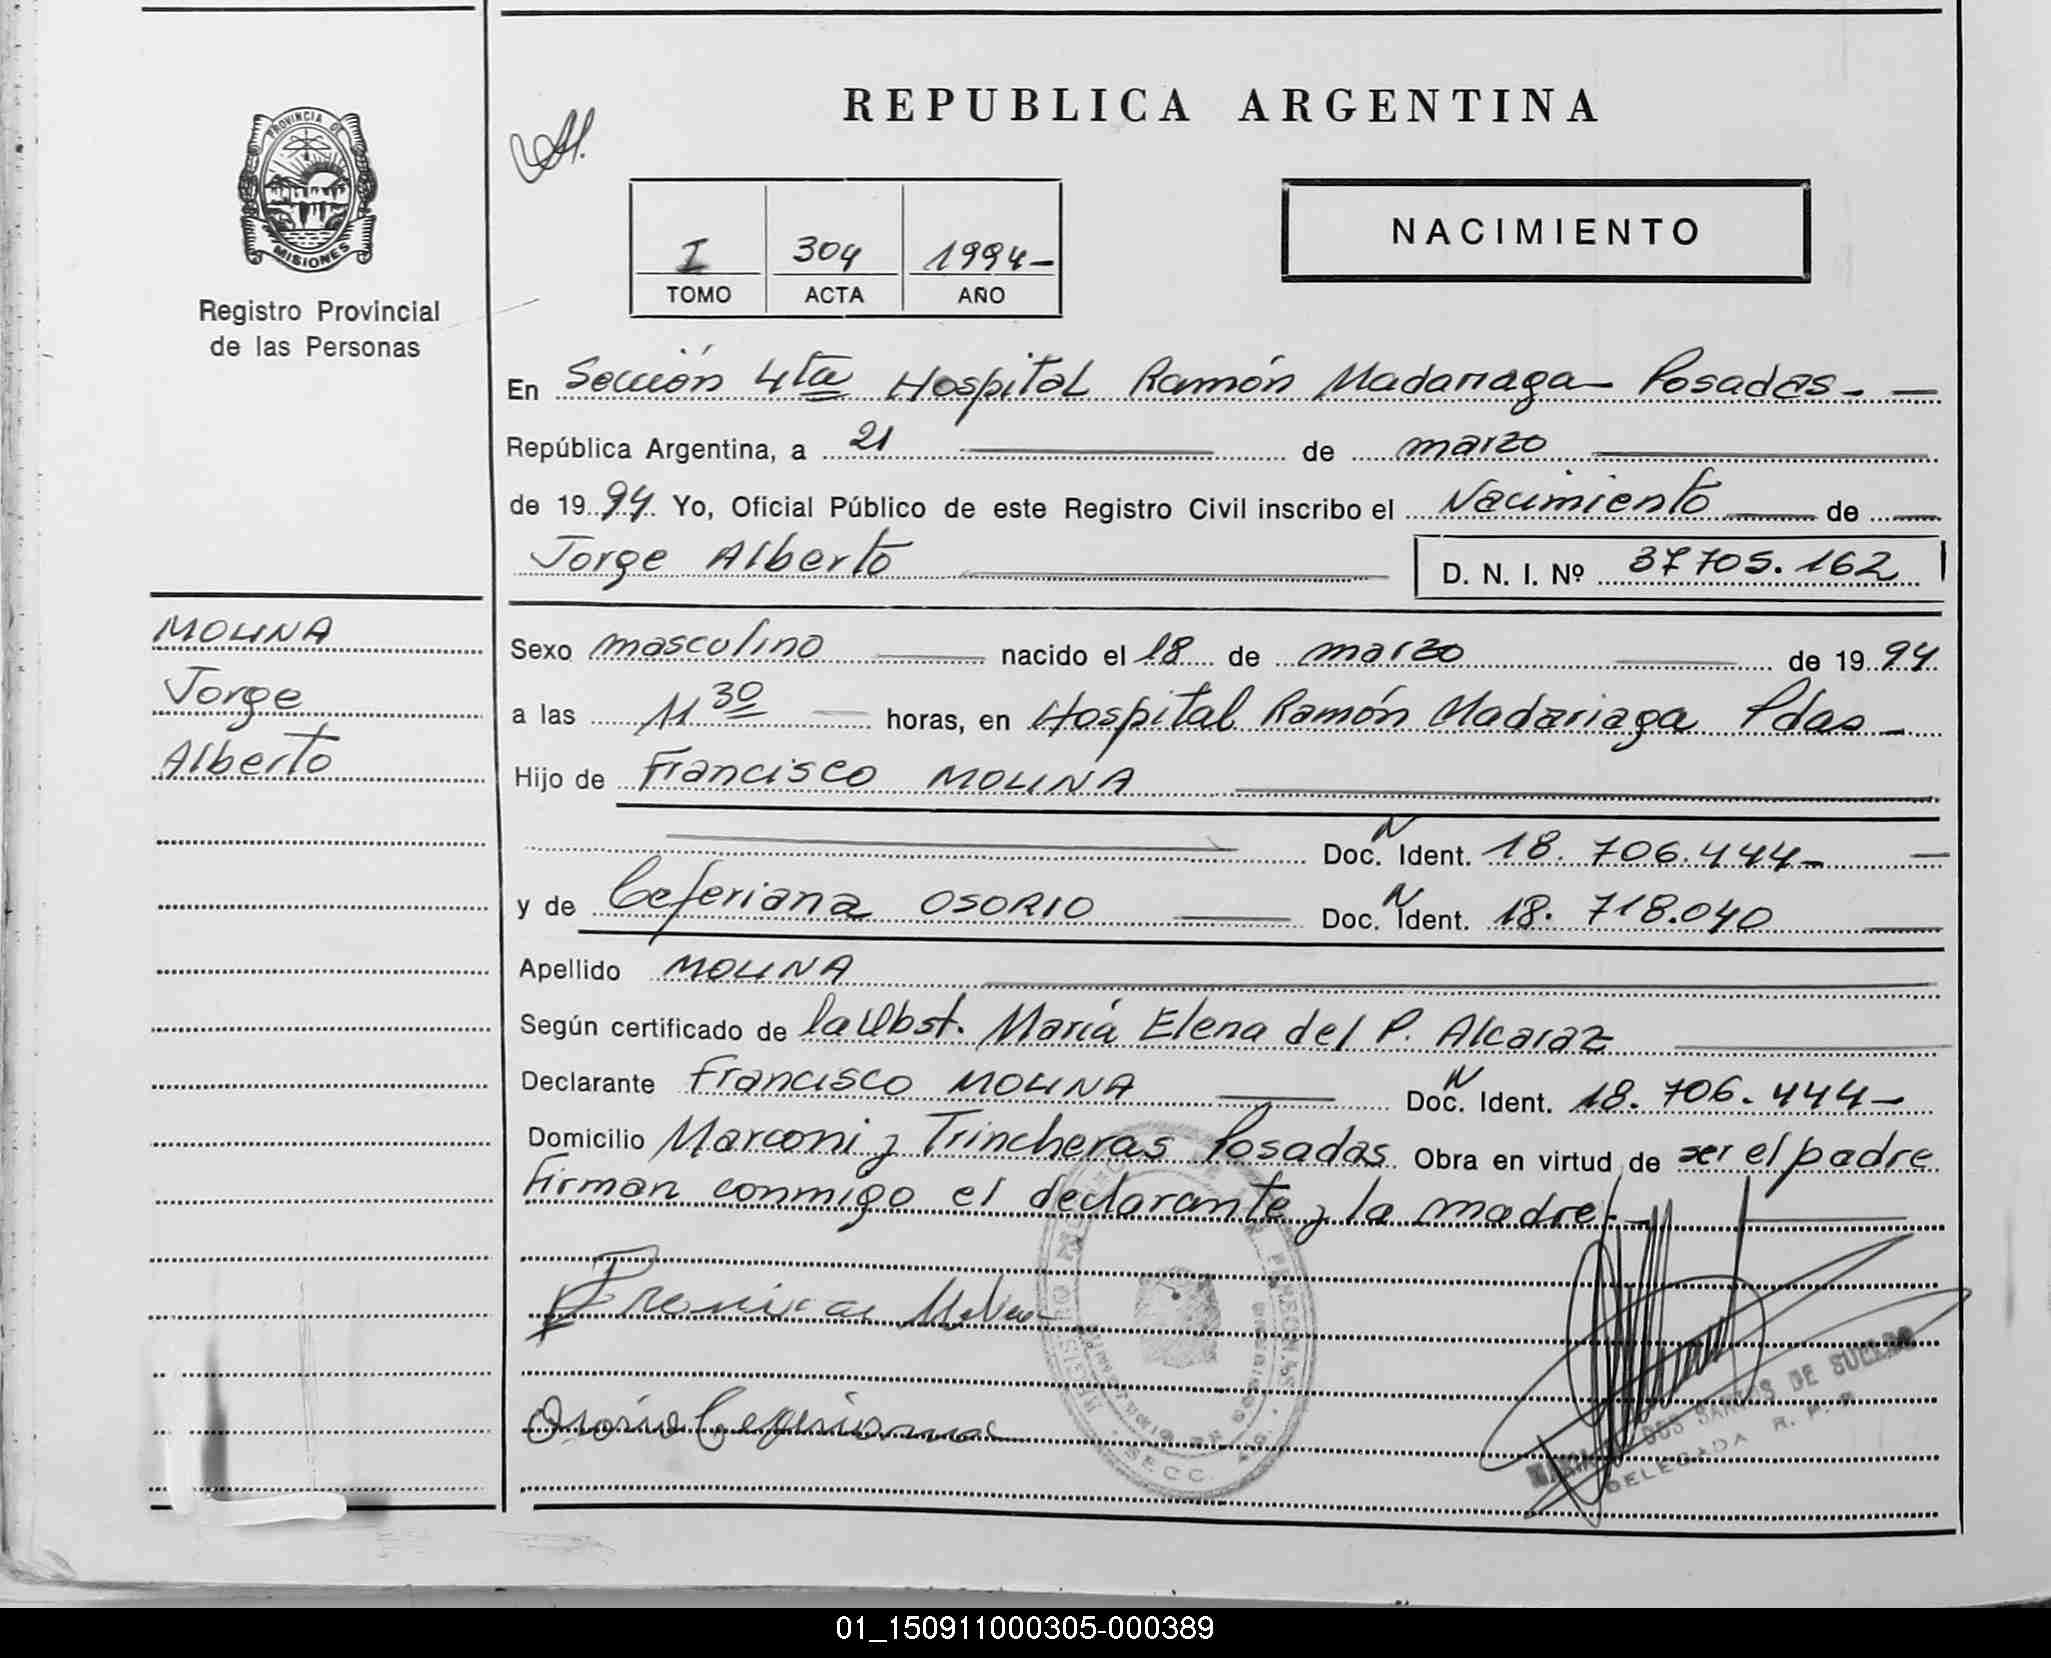 REPUBLICA ARGENTINA
PROVINCIA DE
MISIONES
Registro Provincial
de las Personas
I 304 1994-
TOMO ACTA AÑO
NACIMIENTO
En Sección 4ta Hospital Ramón Madariaga - Posadas - -
República Argentina, a 21 de marzo
de 1994 Yo, Oficial Público de este Registro Civil inscribo el Nacimiento de
Jorge Alberto D. N. I. Nº 37705.162
MOLINA
Jorge
Alberto
Sexo masculino nacido el 18 de marzo de 1994
a las 11 30 horas, en Hospital Ramón Madariaga Pdas -
Hijo de Francisco MOLINA
Doc. N Ident. 18.706.444-
y de Ceferiana OSORIO Doc. N Ident. 18.718.040
Apellido MOLINA
Según certificado de la Obst. María Elena del P. Alcaraz
Declarante Francisco MOLINA Doc. N Ident. 18.706.444-
Domicilio Marconi y Trincheras Posadas Obra en virtud de ser el padre
Firman conmigo el declarante y la madre.-
Osorio Ceferiana
SECC.
DOS SANTOS DE
DELEGADA R. P. P.
01_150911000305-000389